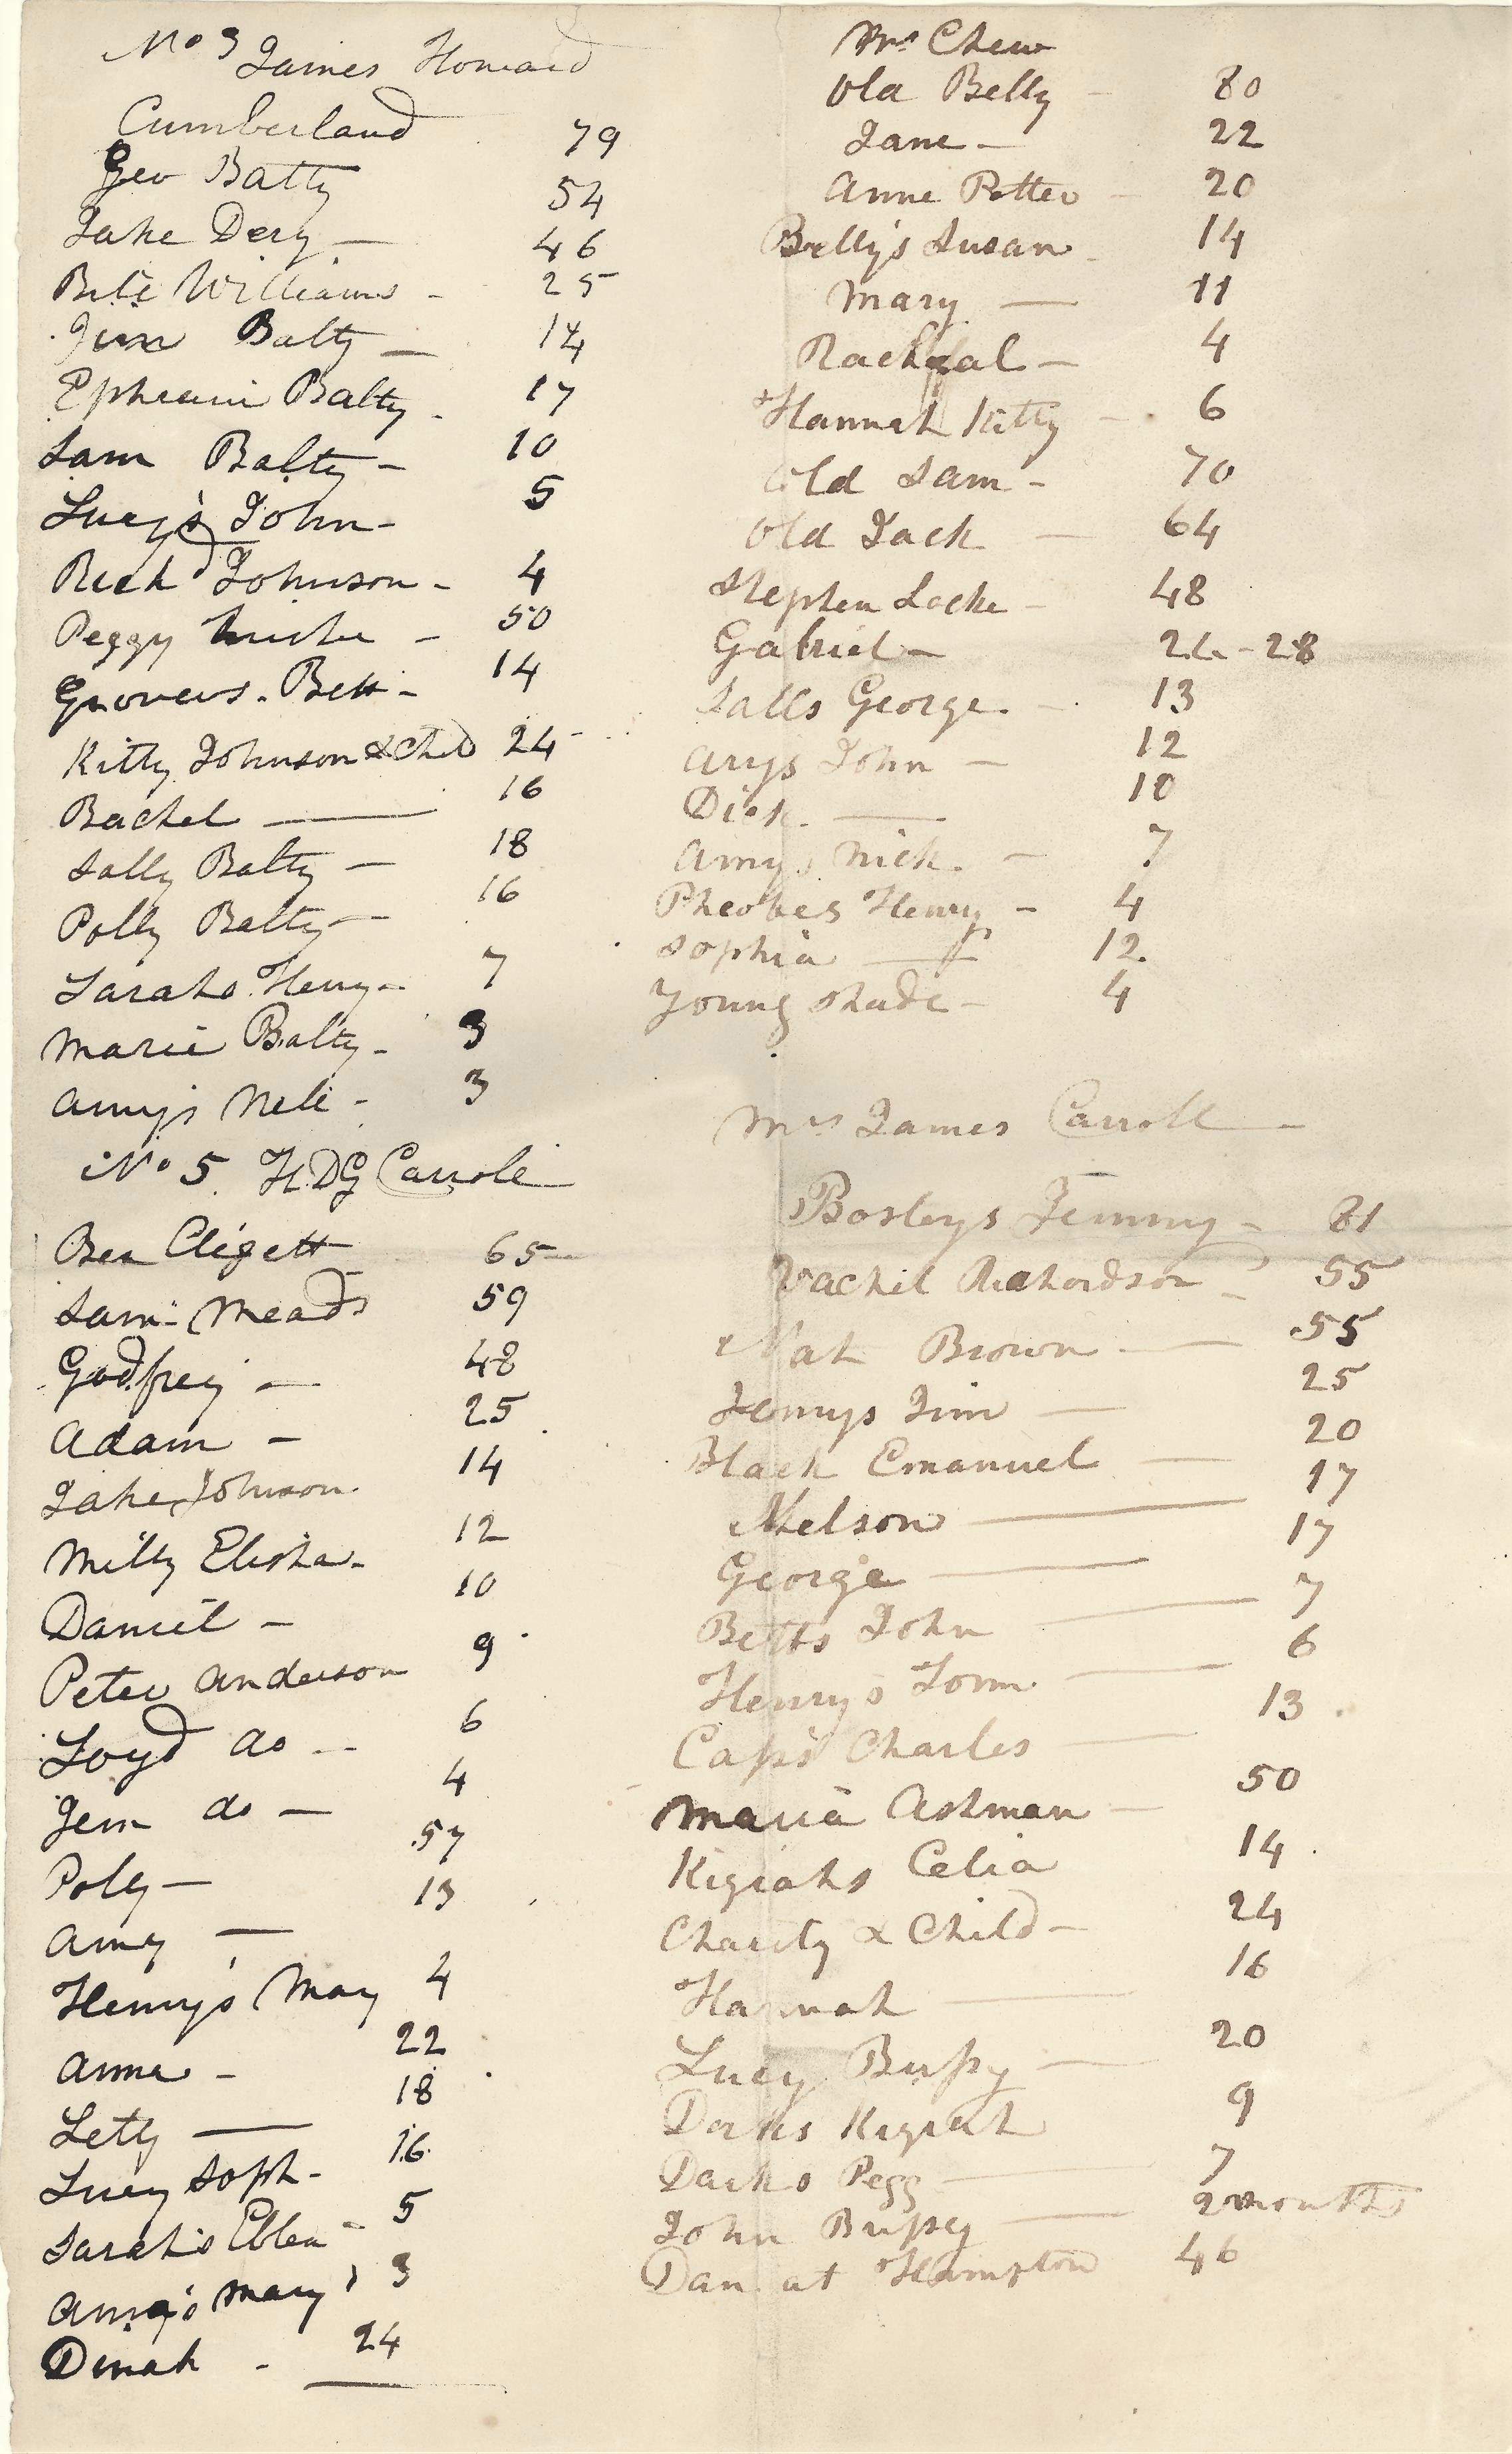 No 3 James Howard
Cumberland 79
Geo Batty 54
Jake Dery 46
Bill Williams - 25
Jim Batty - 14
Ephraim Batty - 17
Sam Batty - 10
Lucy's John - 5
Richd Johnson - 4
Peggy - 50
Grovers. Bett - 14
Kitty Johnson & Child 24
Rachel - 16
Sally Batty - 18
Polly Batty - 16
Sarahs Henry - 7
Maria Batty - 3
Amy's Nell - 3
No 5. HDG Carroll
Ben Cligett 65
Sam: Meads 59
Godfrey - 48
Adam - 25
Jake Johnson 14
Milly Elisha - 12
Daniel - 10
Peter Anderson 9
Loyd do - 6
Jem do - 4
Polly - 57
Amy - 13
Henny's May 4
Anna - 22
Letty - 18
Lucy Soph - 16
Sarah's Ellen - 5
Amy's Mary 3
Dinah - 24
Mrs Chew
Old Belly - 80
Jane - 22
Anne Potter - 20
Belly's Susan - 14
Mary - 11
Rachael - 4
Hannah Kitty - 6
Old Sam - 70
Old Jack - 64
Stephen Locke - 48
Gabriel - 26 - 28
Salls George - 13
Arys John - 12
Dick - 10
Amys Nick - 7
Pheobes Henry - 4
Sophia - 12
Young Shade - 4
Mrs James Carroll
Bosleys Jemmy - 81
Vachel Richardson - 55
Nat Brown - 55
Jemys Jim - 25
Black Emanuel - 20
Nelson - 17
George - 17
Betts John - 7
Henrys Tom - 6
Caps Charles - 13
Maria Ashman - 50
Kiziahs Celia 14
Charity & Child - 24
Hannah - 16
Lucy Bussy - 20
Darks Kiziah 9
Darks Pegg - 7
John Bussey - 2 months
Dan at Hampton 46